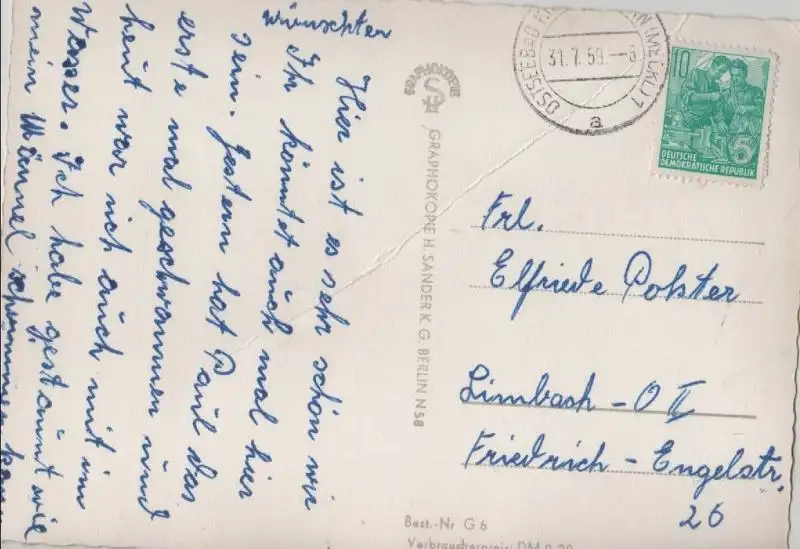 Hier ist es sehr schön wir
wünschten
Ihr könntet auch mal hier
sein. Gestern hat Paul das
erste mal geschwommen und
heut war ich auch mit im
Wasser. Ich habe gestaunt wie
mein Männel schwimmen kann
GRAPHOKOPIE
GRAPHOKOPIE H. SANDER K. G. BERLIN N 58
OSTSEEBAD (MECKL) 1
31.7.59.--6
a
10
DEUTSCHE
DEMOKRATISCHE REPUBLIK
Frl.
Elfriede Polster
Limbach - O II
Friedrich - Engelstr.
26
Best.-Nr G 6
Verbraucherpreis: DM 0.20